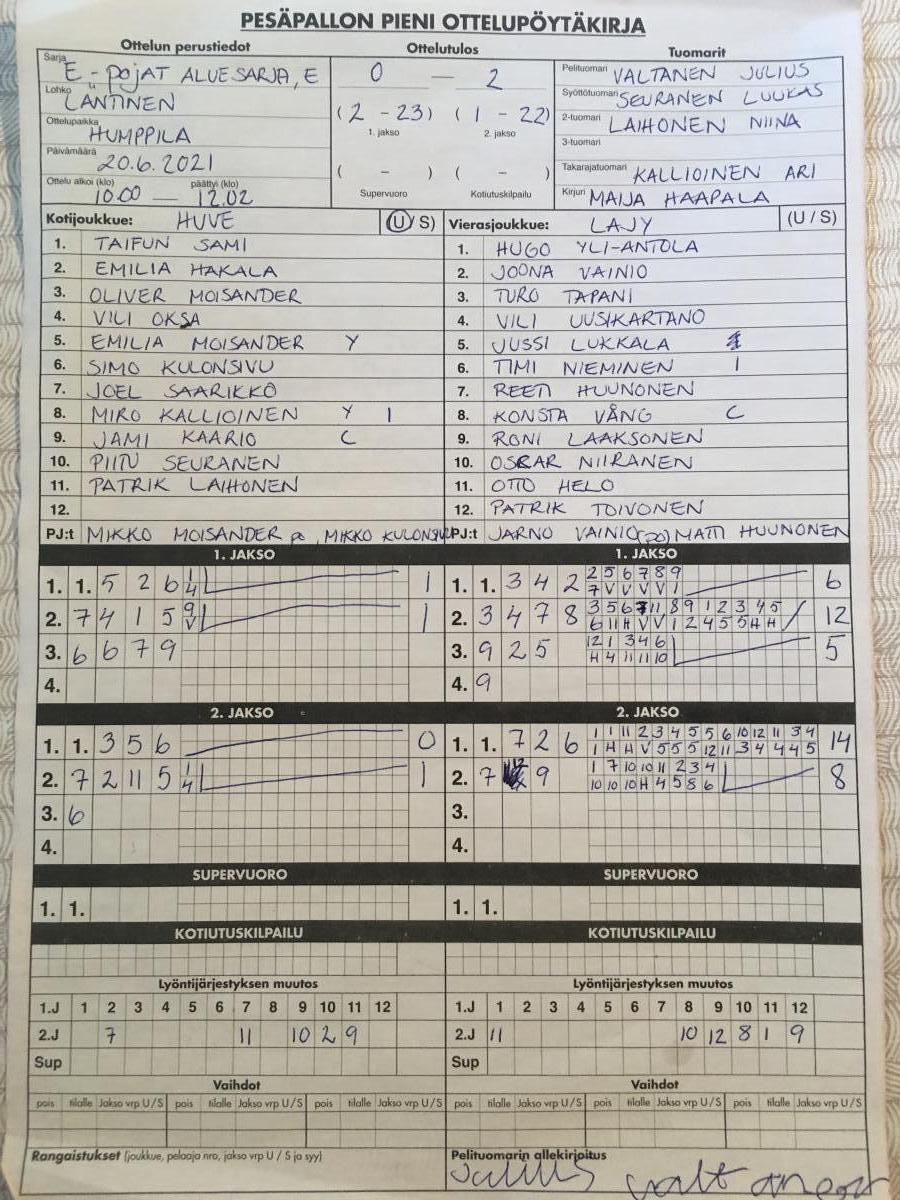 PESÄPALLON PIENI OTTELUPÖYTÄKIRJA
Ottelun perustiedot
Sarja E-POJAT ALUESARJA, E
Lohko LÄNTINEN
Ottelupaikka HUMPPILA
Päivämäärä 20.6.2021
Ottelu alkoi (klo) päättyi (klo)
10.00 — 12.02
Ottelutulos
0 — 2
(2 - 23) (1 - 22)
1. jakso 2. jakso
( - ) ( - )
Supervuoro Kotiutuskilpailu
Tuomarit
Pelituomari VALTANEN JULIUS
Syöttötuomari SEURANEN LUUKAS
2-tuomari LAIHONEN NIINA
3-tuomari
Takarajatuomari KALLIOINEN ARI
Kirjuri MAIJA HAAPALA
Kotijoukkue: HUVE (U/S)
1. TAIFUN SAMI
2. EMILIA HAKALA
3. OLIVER MOISANDER
4. VILI OKSA
5. EMILIA MOISANDER Y
6. SIMO KULONSIVU
7. JOEL SAARIKKO
8. MIRO KALLIOINEN Y I
9. JAMI KAARIO C
10. PIITU SEURANEN
11. PATRIK LAIHONEN
12.
PJ:t MIKKO MOISANDER po, MIKKO KULONSIVU
Vierasjoukkue: LAJY (U/S)
1. HUGO YLI-ANTOLA
2. JOONA VAINIO
3. TURO TAPANI
4. VILI UUSIKARTANO
5. JUSSI LUKKALA
6. TIMI NIEMINEN I
7. REETI HUUNONEN
8. KONSTA VÅNG C
9. RONI LAAKSONEN
10. OSKAR NIIRANEN
11. OTTO HELO
12. PATRIK TOIVONEN
PJ:t JARNO VAINIO (po) MATTI HUUNONEN
1. JAKSO
1. 1. 5 2 6 1 1
4
2. 7 4 1 5 9 1
V
3. 6 6 7 9
4.
1. JAKSO
1. 1. 3 4 2 2 5 6 7 8 9 6
7 V V V V 1
2. 3 4 7 8 3 5 6 7 11 8 9 1 2 3 4 5 12
6 11 H V V 1 2 4 5 5 H H
3. 9 2 5 12 1 3 4 6 5
H 4 11 11 10
4. 9
2. JAKSO
1. 1. 3 5 6 0
2. 7 2 11 5 1 1
4
3. 6
4.
2. JAKSO
1. 1. 7 2 6 1 1 11 2 3 4 5 5 6 10 12 11 3 4 14
1 H H V 5 5 5 12 11 3 4 4 4 5
2. 7 12 9 1 7 10 10 11 2 3 4 8
10 10 10 H 4 5 8 6
3.
4.
SUPERVUORO
1. 1.
SUPERVUORO
1. 1.
KOTIUTUSKILPAILU
KOTIUTUSKILPAILU
Lyöntijärjestyksen muutos
1.J 1 2 3 4 5 6 7 8 9 10 11 12
2.J 7 11 10 2 9
Sup
Lyöntijärjestyksen muutos
1.J 1 2 3 4 5 6 7 8 9 10 11 12
2.J 11 10 12 8 1 9
Sup
Vaihdot
pois tilalle Jakso vrp U/S pois tilalle Jakso vrp U/S pois tilalle Jakso vrp U/S
Vaihdot
pois tilalle Jakso vrp U/S pois tilalle Jakso vrp U/S pois tilalle Jakso vrp U/S
Rangaistukset (joukkue, pelaaja nro, jakso vrp U / S ja syy)
Pelituomarin allekirjoitus